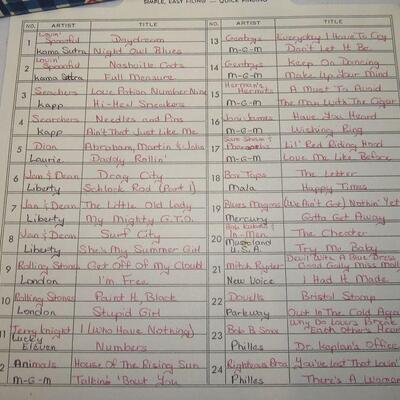 SIMPLE, EASY FILING — QUICK FINDING
NO. ARTIST TITLE
1 Lovin' Spoonful Daydream
Kama Sutra Night Owl Blues
2 Lovin' Spoonful Nashville Cats
Kama Sutra Full Measure
3 Searchers Love Potion Number Nine
Kapp Hi-Heel Sneakers
4 Searchers Needles and Pins
Kapp Ain't That Just Like Me
5 Dion Abraham, Martin & John
Laurie Daddy Rollin'
6 Jan & Dean Drag City
Liberty Schlock Rod (Part 1)
7 Jan & Dean The Little Old Lady
Liberty My Mighty G.T.O.
8 Jan & Dean Surf City
Liberty She's My Summer Girl
9 Rolling Stones Get Off Of My Cloud
London I'm Free
10 Rolling Stones Paint It, Black
London Stupid Girl
11 Terry Knight I (Who Have Nothing)
Lucky Eleven Numbers
2 Animals House Of The Rising Sun
M-G-M Talkin' 'Bout You
NO. ARTIST TITLE
13 Gentrys Everyday I Have To Cry
M-G-M Don't Let It Be
14 Gentrys Keep On Dancing
M-G-M Make Up Your Mind
15 Herman's Hermits A Must To Avoid
M-G-M The Man With The Cigar
16 Joni James Have You Heard
M-G-M Wishing Ring
17 Sam Sham & Pharaohs Lil' Red Riding Hood
M-G-M Love Me Like Before
18 Box Tops The Letter
Mala Happy Times
19 Blues Magoos (We Ain't Got) Nothin' Yet
Mercury Gotta Get Away
20 Bob Kuban & In-Men The Cheater
Musicland U.S.A. Try Me Baby
21 Mitch Ryder Devil With A Blue Dress Good Golly Miss Moll
New Voice I Had It Made
22 Dovells Bristol Stomp
Parkway Out In The Cold Aga
23 Bob B. Soxx Why Do Lovers Break Each Others Hear
Philles Dr. Kaplan's Office
24 Righteous Bros. You've Lost That Lovin'
Philles There's A Woman